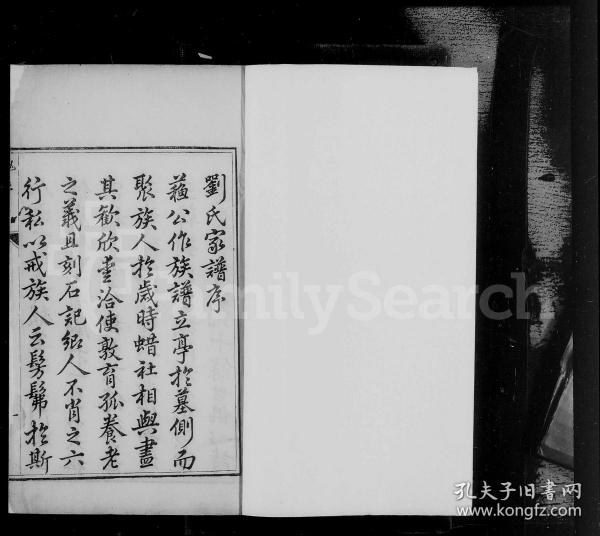 劉氏家譜序
蘓公作族譜立亭於墓側而
聚族人於歲時蜡社相與盡
其歡欣愛洽使敦育孤養老
之義且刻石記鄉人不肖之六
行私以戒族人云髣髴於斯
FamilySearch
孔夫子旧書网
www.kongfz.com